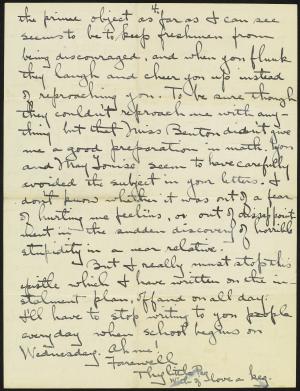 4.
the prime object as far as I can see
seems to be to keep freshmen from
being discouraged, and when you flunk
they laugh and cheer you up instead
of reproaching you. To be sure though
they couldn't reproach me with any-
thing but that Miss Benton didn't give
me a good preparation in math. You
and Mary Louise seem to have carefully
avoided the subject in your letters. I
don't know whether it was out of a fear
of hurting me feelins, or out of disappoint-
ment in the sudden discovery of horrible
stupidity in a near relative.
But I really must stop this
epistle which I have written on the in-
stalment plan, off and on all day.
I'll have to stop writing to you people
everyday when school begins on
Wednesday. Ah me!
Farewell
Thy
With love a keg.